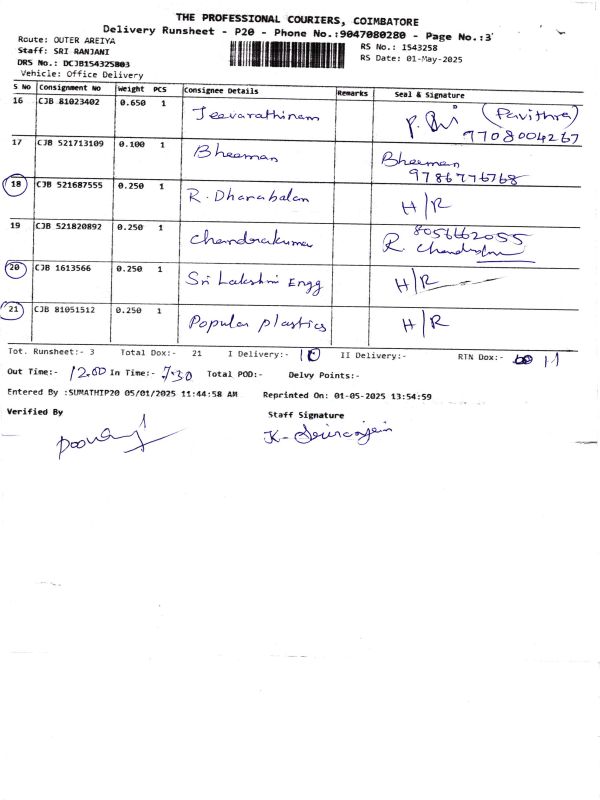 THE PROFESSIONAL COURIERS, COIMBATORE
Delivery Runsheet - P20 - Phone No.:9047080280 - Page No.:3
Route: OUTER AREIYA
RS No.: 1543258
Staff: SRI RANJANI
RS Date: 01-May-2025
DRS No.: DCJB1543258B03
Vehicle: Office Delivery
S No Consignment No Weight PCS Consignee Details Remarks Seal & Signature
16 CJB 81023402 0.650 1 Jeevarathinam (Pavithra)
7708004267
17 CJB 521713109 0.100 1 Bheeman Bheeman
9786776768
18 CJB 521687555 0.250 1 R. Dhanabalan H/R
19 CJB 521820892 0.250 1 Chandrakumar 8056662055
R.
20 CJB 1613566 0.250 1 Sri Lakshmi Engg H/R
21 CJB 81051512 0.250 1 Popular plastics H/R
Tot. Runsheet:- 3 Total Dox:- 21 I Delivery:- 10 II Delivery:- RTN Dox:- 11
Out Time:- 12.00 In Time:- 7.30 Total POD:- Delvy Points:-
Entered By :SUMATHIP20 05/01/2025 11:44:58 AM Reprinted On: 01-05-2025 13:54:59
Verified By Staff Signature